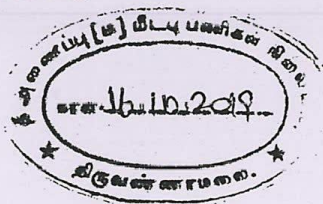 தீயணைப்பு [ம] மீட்பு பணிகள் நிலைய
நாள் 16.10.2019
திருவண்ணாமலை.